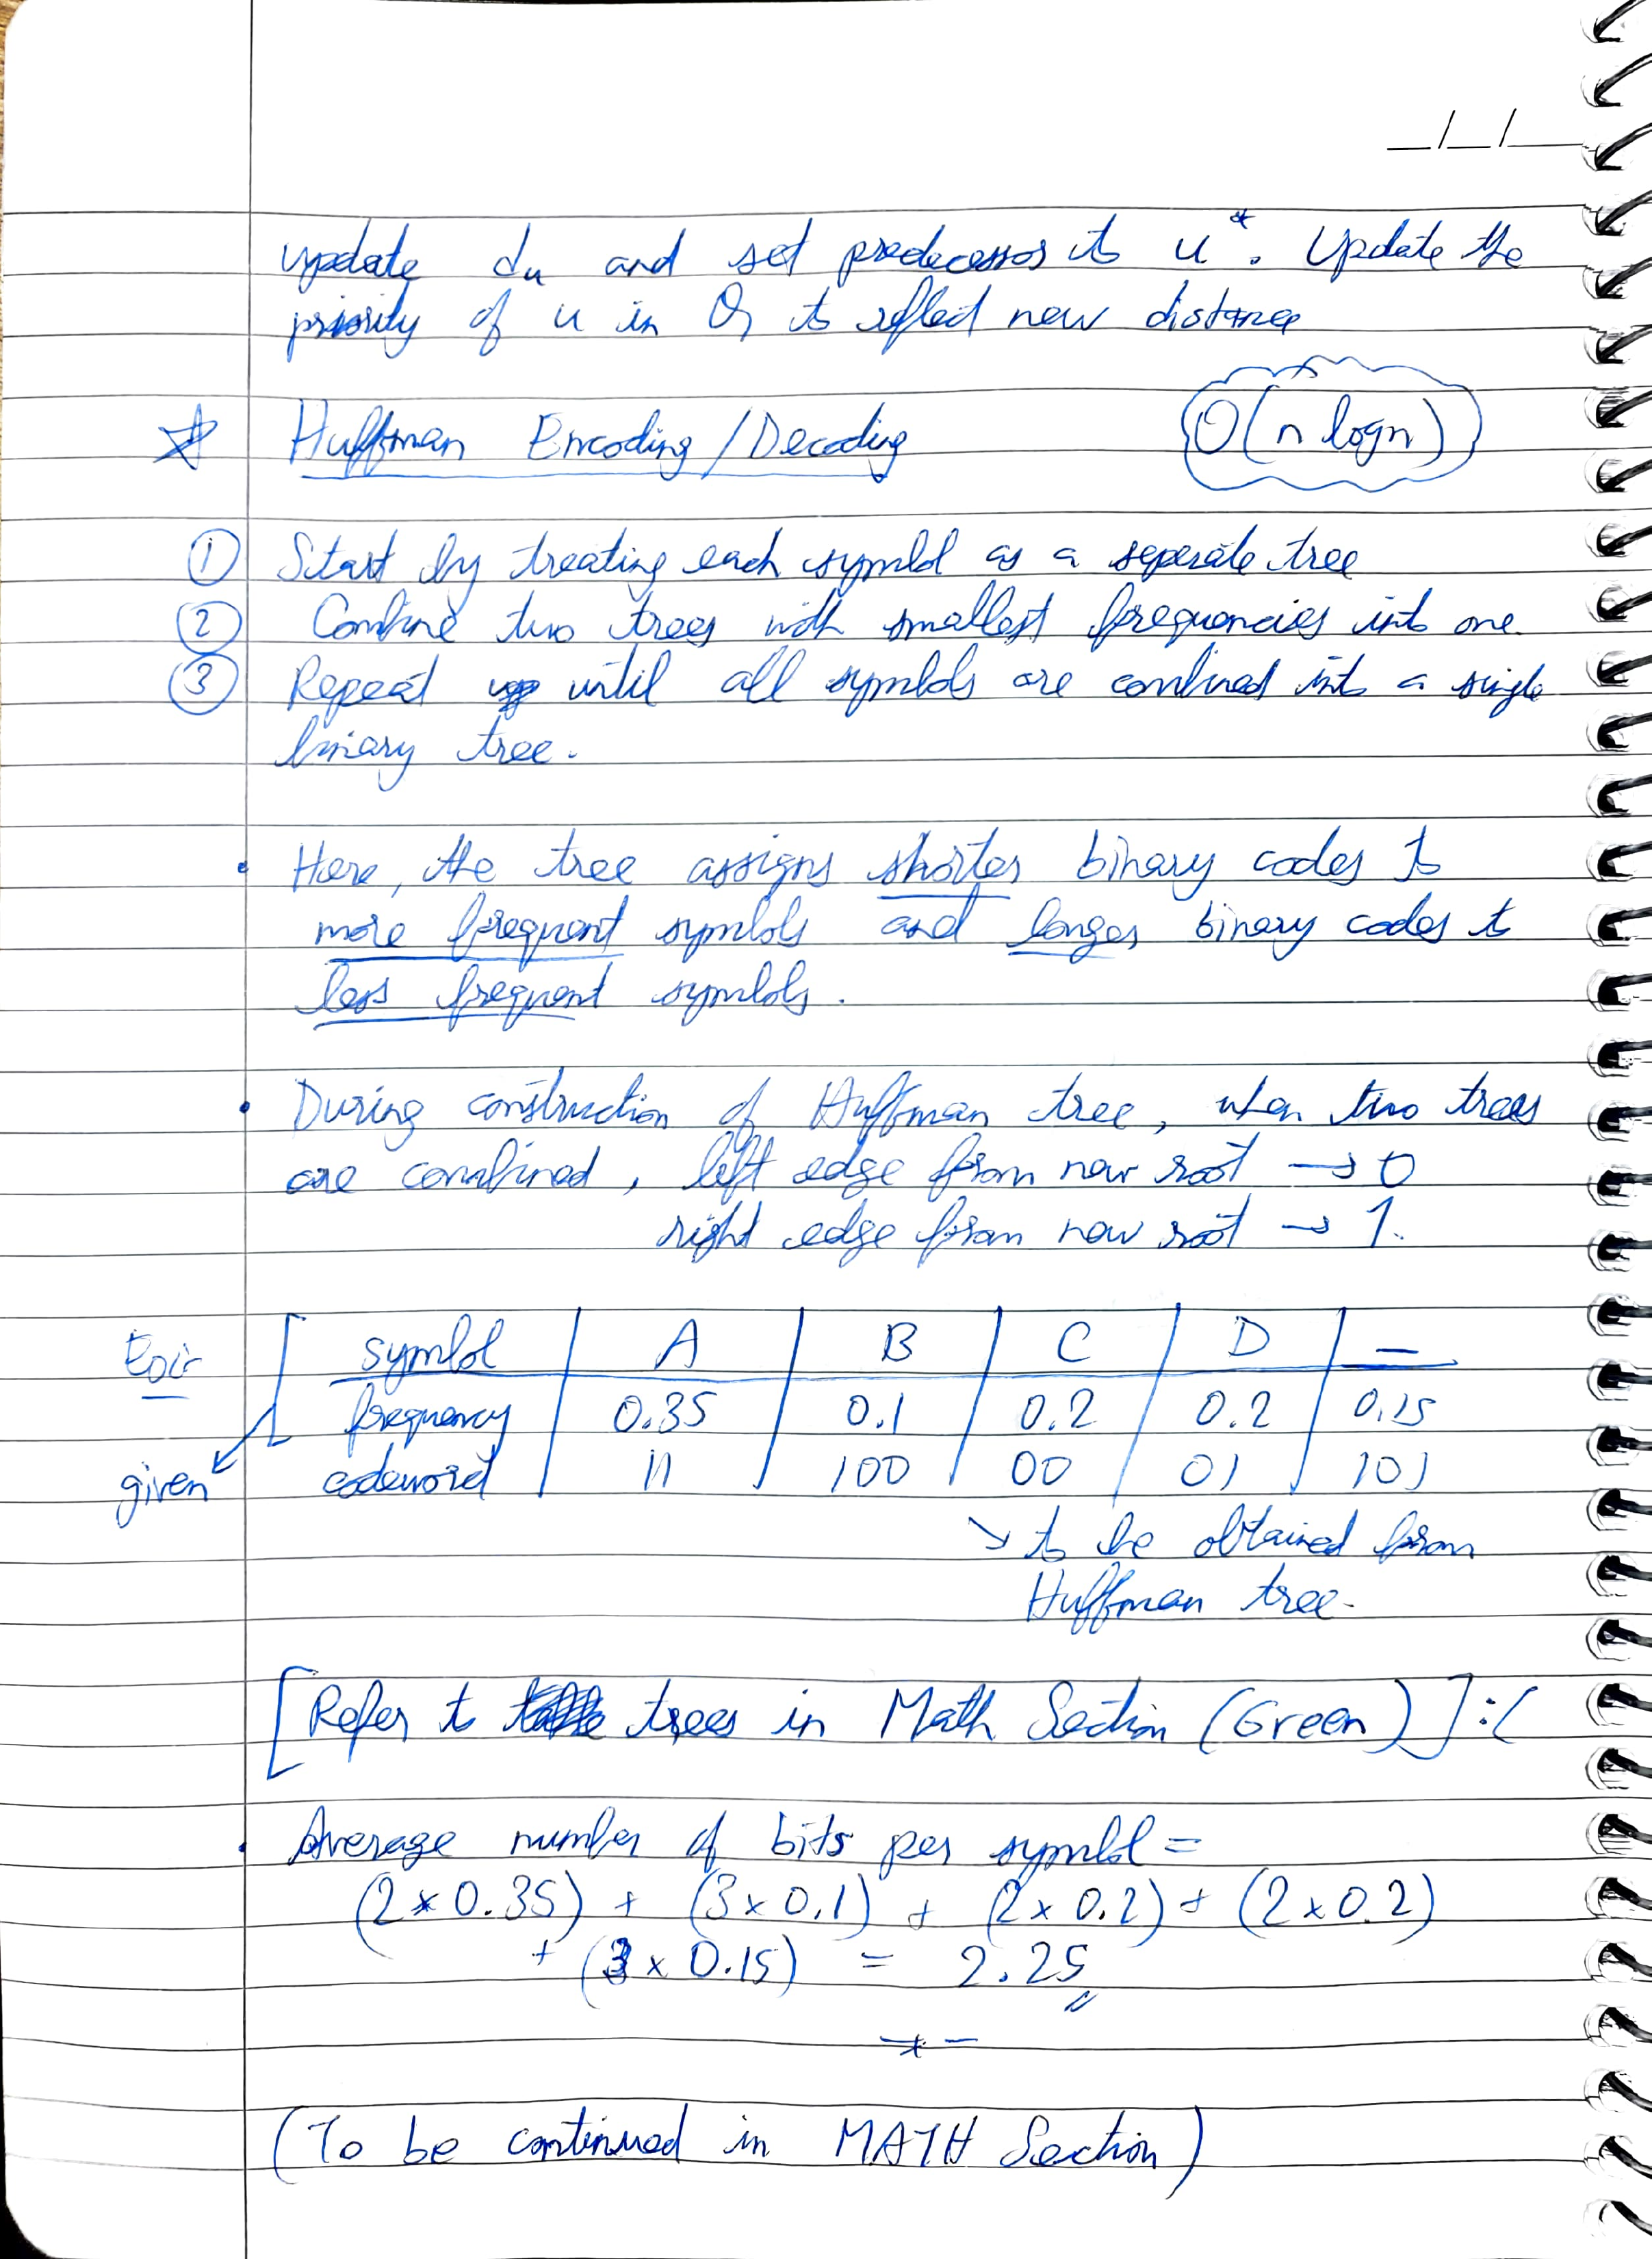 _/_/_
update du and set predecessor to u*. Update the
priority of u in Q, to reflect new distance
☆ Huffman Encoding/Decoding O(n logn)
① Start by treating each symbol as a seperate tree
② Combine two trees with smallest frequencies into one.
③ Repeat until all symbols are combined into a single
binary tree.
• Here, the tree assigns shorter binary codes to
more frequent symbols and longer binary codes to
less frequent symbols.
• During construction of Huffman tree, when two trees
are combined, left edge from new root → 0
right edge from new root → 1.
symbol | A | B | C | D | _
frequency | 0.35 | 0.1 | 0.2 | 0.2 | 0.15
given codeword | 11 | 100 | 00 | 01 | 101
↘ to be obtained from
Huffman tree.
[Refer to trees in Math Section (Green)] :(
• Average number of bits per symbol =
(2 x 0.35) + (3 x 0.1) + (2 x 0.2) + (2 x 0.2)
+ (3 x 0.15) = 2.25
(To be continued in MATH Section)